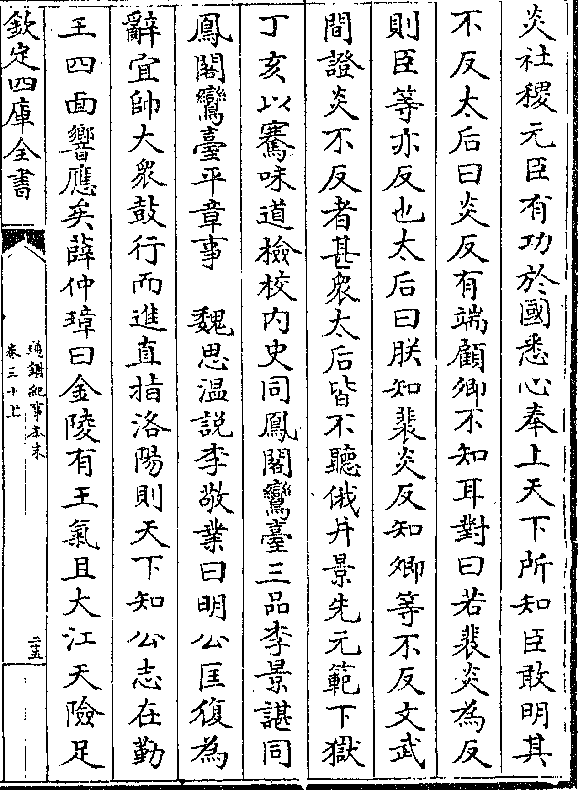 炎社稷元臣有功於國悉心奉上天下所知臣敢明其
不反太后曰炎反有端顧卿不知耳對曰若裴炎為反
則臣等亦反也太后曰朕知裴炎反知卿等不反文武
間證炎不反者甚衆太后皆不聽俄并景先元範下獄
丁亥以騫味道檢校内史同鳳閣鸞臺三品李景諶同
鳳閣鸞臺平章事　魏思溫說李敬業曰明公匡復為
辭宜帥大衆鼓行而進直指洛陽則天下知公志在勤
王四面響應矣薛仲璋曰金陵有王氣且大江天險足
欽定四庫全書
通鑑紀事本末
卷三十上
二五